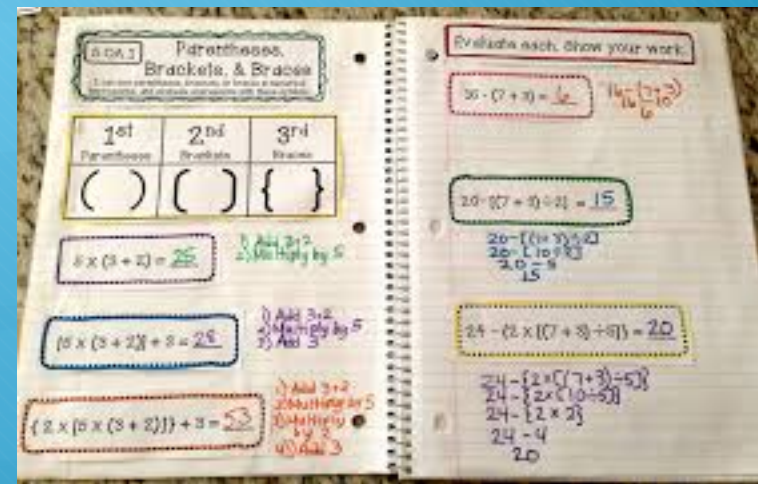 5.OA.1
Parentheses,
Brackets, & Braces
1st
2nd
3rd
Parentheses
Brackets
Braces
( )
[ ]
{ }
5 x (3 + 2) = 25
1) Add 3+2
2) Multiply by 5
[5 x (3 + 2)] + 3 = 28
1) Add 3+2
2) Multiply by 5
3) Add 3
{ 2 x [5 x (3 + 2)]} + 3 = 53
1) Add 3+2
2) Multiply by 5
3) Multiply
by 2
4) Add 3
Evaluate each. Show your work.
16 - (7 + 3) = 6
16-(7+3)
16-10
6
20 - [(7 + 3) ÷ 2] = 15
20-[(7+3)÷2]
20-[10÷2]
20-5
15
24 - {2 x [(7 + 3) ÷ 5]} = 20
24-{2x[(7+3)÷5]}
24-{2x[10÷5]}
24-{2x2}
24-4
20